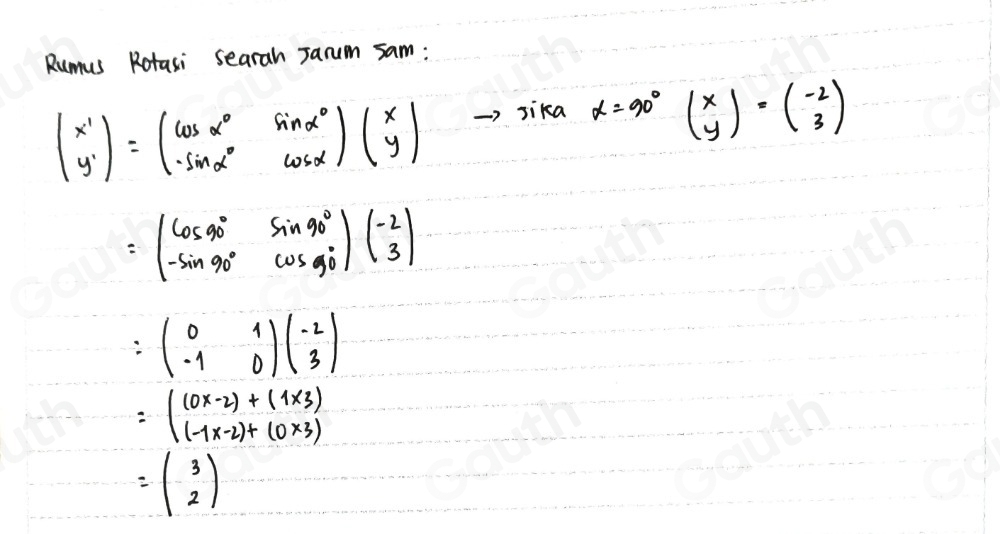 Rumus Rotasi searah Jarum Jam :
(x' y') = (cos α° sin α° -sin α° cos α) (x y) → Jika α = 90° (x y) = (-2 3)
= (cos 90° sin 90° -sin 90° cos 90°) (-2 3)
= (0 1 -1 0) (-2 3)
= ((0×-2) + (1×3) (-1×-2) + (0×3)
= (3 2)
Gauth